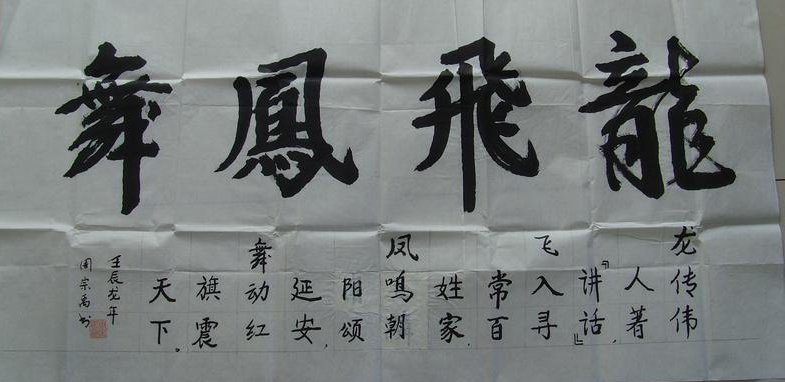 龍飛鳳舞
龙传伟
人著
『讲话』,
飞入寻
常百
姓家,
凤鸣朝
阳颂
延安,
舞动红
旗震
天下。
壬辰龙年
周宗禹书